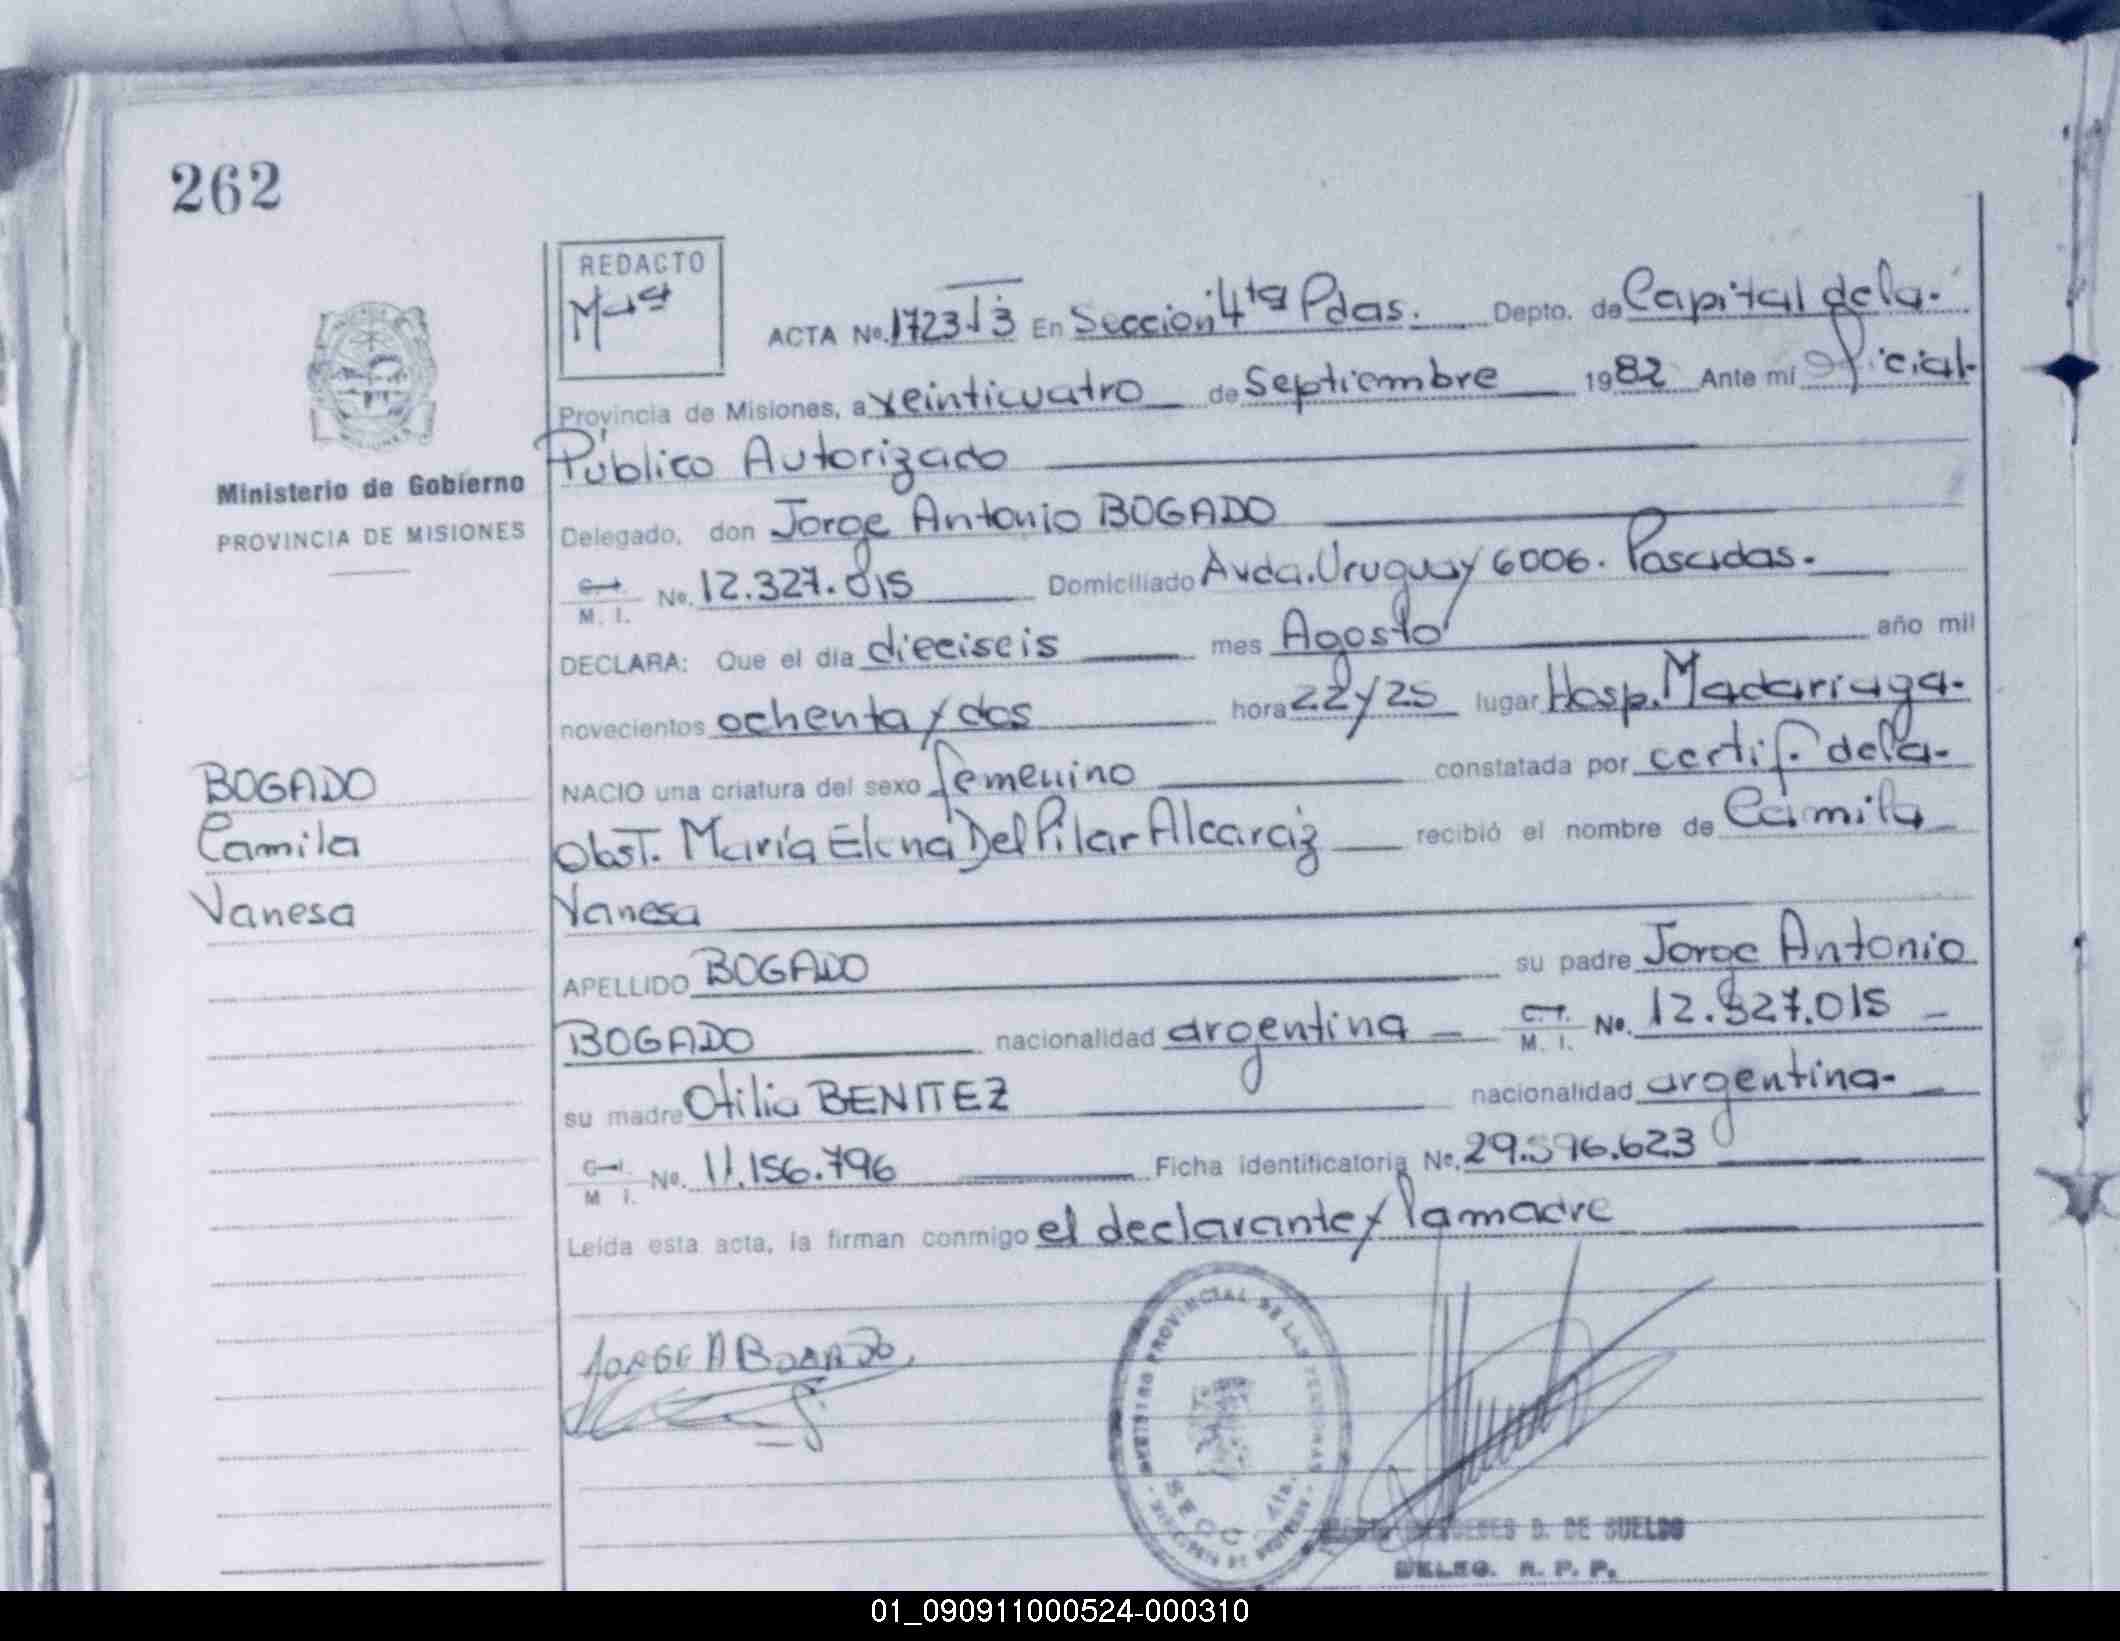 262
REDACTO
ACTA No. 1723 J 3 En Sección 4ta Pdas. Depto. de Capital dela-
Provincia de Misiones, a veinticuatro de Septiembre 1982 Ante mí Oficial
Público Autorizado
Ministerio de Gobierno
PROVINCIA DE MISIONES
Delegado, don Jorge Antonio BOGADO
C.I. M. I. No. 12.327.015 Domiciliado Avda. Uruguay 6006. Posadas.
DECLARA: Que el día dieciseis mes Agosto año mil
novecientos ochenta y dos hora 22 y 25 lugar Hosp. Madariaga-
NACIO una criatura del sexo femenino constatada por certif. dela-
Obst. María Elena Del Pilar Alcaraz recibió el nombre de Camila
Vanesa
BOGADO
Camila
Vanesa
APELLIDO BOGADO su padre Jorge Antonio
BOGADO nacionalidad argentina - C.I. M. I. No. 12.327.015 -
su madre Otilia BENITEZ nacionalidad argentina-
C.I. M I. No. 11.156.796 Ficha identificatoria No. 29.596.623
Leída esta acta, la firman conmigo el declarante y la madre
JORGE A BOGADO
REGISTRO PROVINCIAL DE LAS PERSONAS
SECC. 4ta.
D. DE SUELDO
DELEG. R. P. P.
01_090911000524-000310